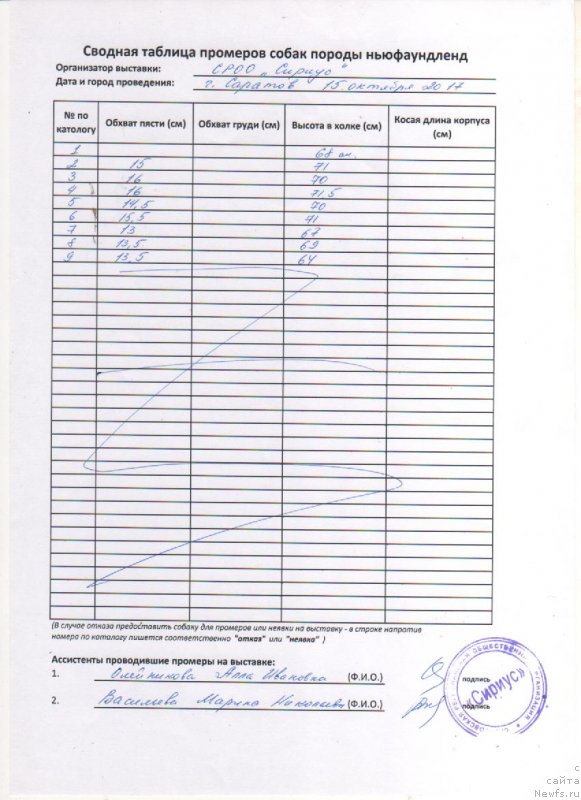 Сводная таблица промеров собак породы ньюфаундленд
Организатор выставки: СРОО „Сириус"
Дата и город проведения: г. Саратов 15 октября 2017
№ по каталогу Обхват пясти (см) Обхват груди (см) Высота в холке (см) Косая длина корпуса (см)
1 68 см.
2 15 71
3 16 70
4 16 71,5
5 14,5 70
6 15,5 71
7 13 67
8 13,5 69
9 13,5 64
(В случае отказа предоставить собаку для промеров или неявки на выставку - в строке напротив
номера по каталогу пишется соответственно "отказ" или "неявка" )
Ассистенты проводившие промеры на выставке:
1. Олейникова Алла Ивановна (Ф.И.О.) подпись
2. Васильева Марина (Ф.И.О.) подпись
"Сириус"
с
сайта
Newfs.ru